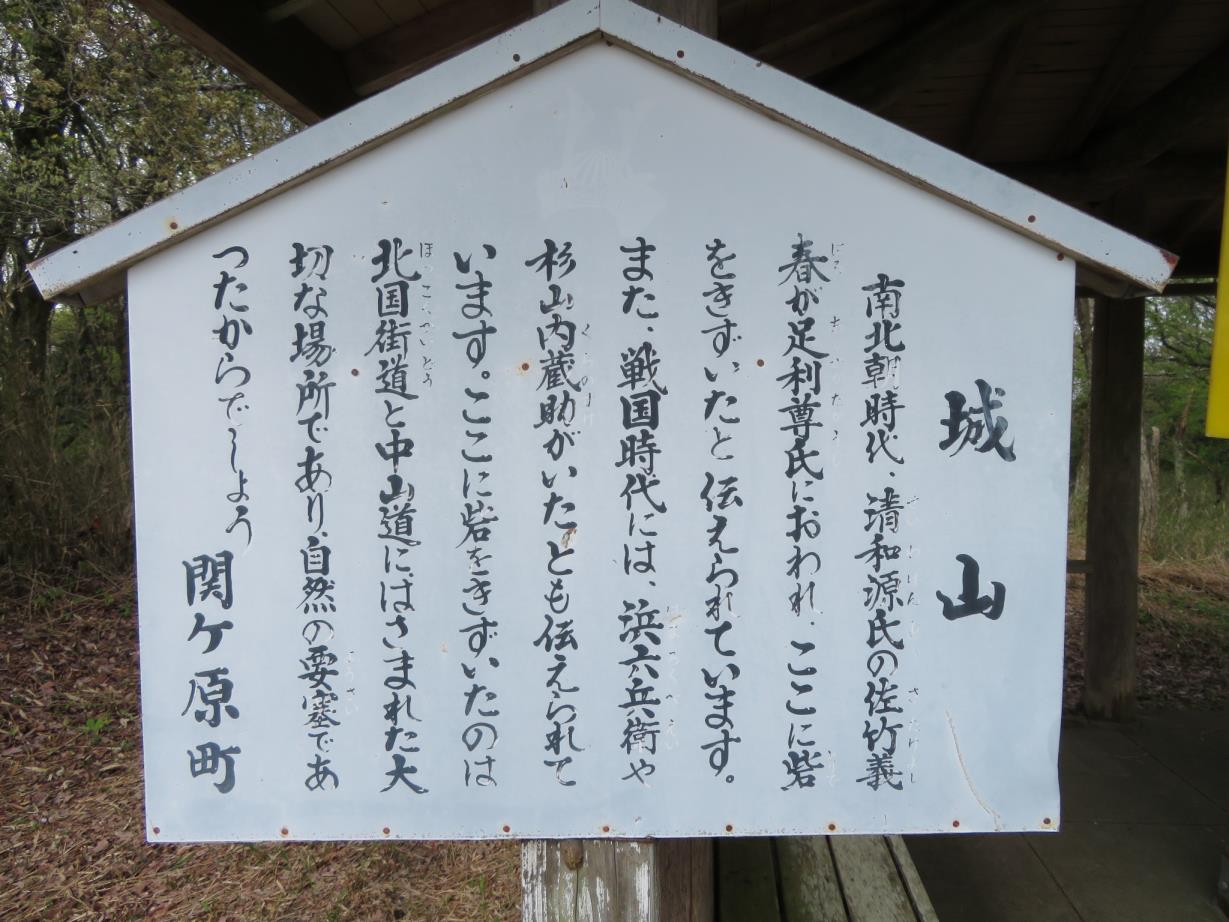 城山
南北朝時代、清和源氏の佐竹義
春が足利尊氏におわれ、ここに砦
をきずいたと伝えられています。
また、戦国時代には、浜六兵衛や
杉山内蔵助がいたとも伝えられて
います。ここに砦をきずいたのは
北国街道と中山道にはさまれた大
切な場所であり、自然の要塞であ
つたからでしょう
関ケ原町